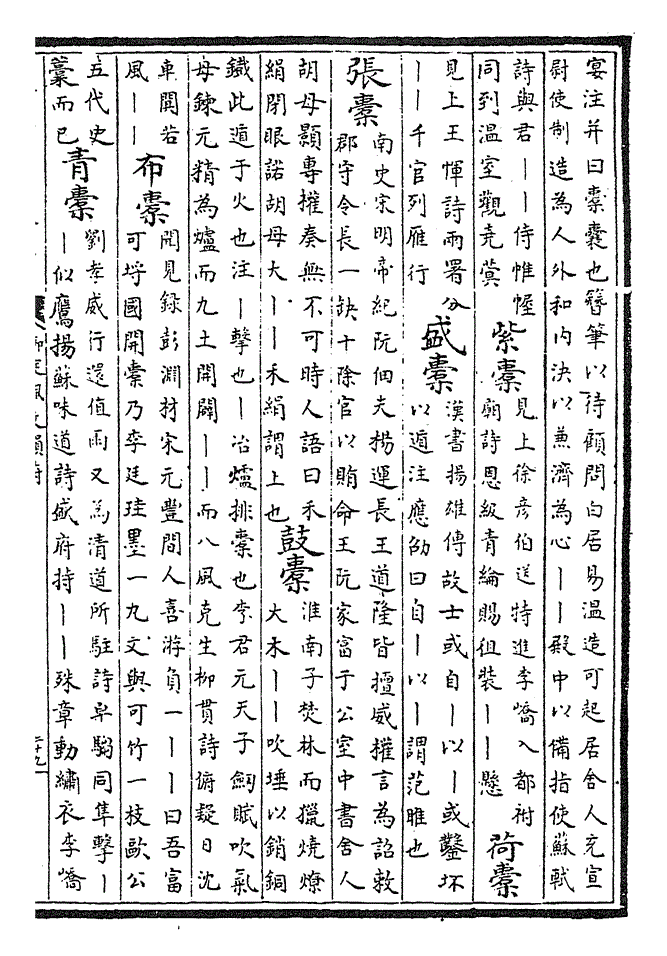 宴注并曰橐囊也簪筆以待顧問白居易溫造可起居舍人充宣
尉使制造為人外和内決以兼濟為心丨丨殿中以備指使蘇軾
詩與君丨丨侍帷幄
同到溫室觀堯蓂
紫橐
見上徐彥伯送特進李嶠入都祔
廟詩恩級青綸賜徂裝丨丨懸
荷橐
見上王惲詩兩署分
丨丨千官列雁行
盛橐
漢書揚雄傳故士或自丨以丨或鑿坏
以遁注應劭曰自丨以丨謂范雎也
張橐
南史宋明帝紀阮佃夫楊運長王道隆皆擅威權言為詔敕
郡守令長一缺十除官以賄命王阮家富于公室中書舍人
胡母顥專權奏無不可時人語曰禾
絹閉眼諾胡母大丨丨禾絹謂上也
鼓橐
淮南子焚林而獵燒燎
大木丨丨吹埵以銷銅
鐵此遁于火也注丨擊也丨冶爐排橐也李君元天子劒賦吹氣
母鍊元精為爐而九土開闢丨丨而八風克生柳貫詩俯疑日沈
車開若
風丨丨
布橐
聞見錄彭淵材宋元豐間人喜游負一丨丨曰吾富
可埒國開橐乃李廷珪墨一丸文與可竹一枝歐公
五代史
藁而已
青橐
劉孝威行還值雨又為清道所駐詩皁騶同隼擊丨
丨似鷹揚蘇味道詩盛府持丨丨殊章動繡衣李嶠